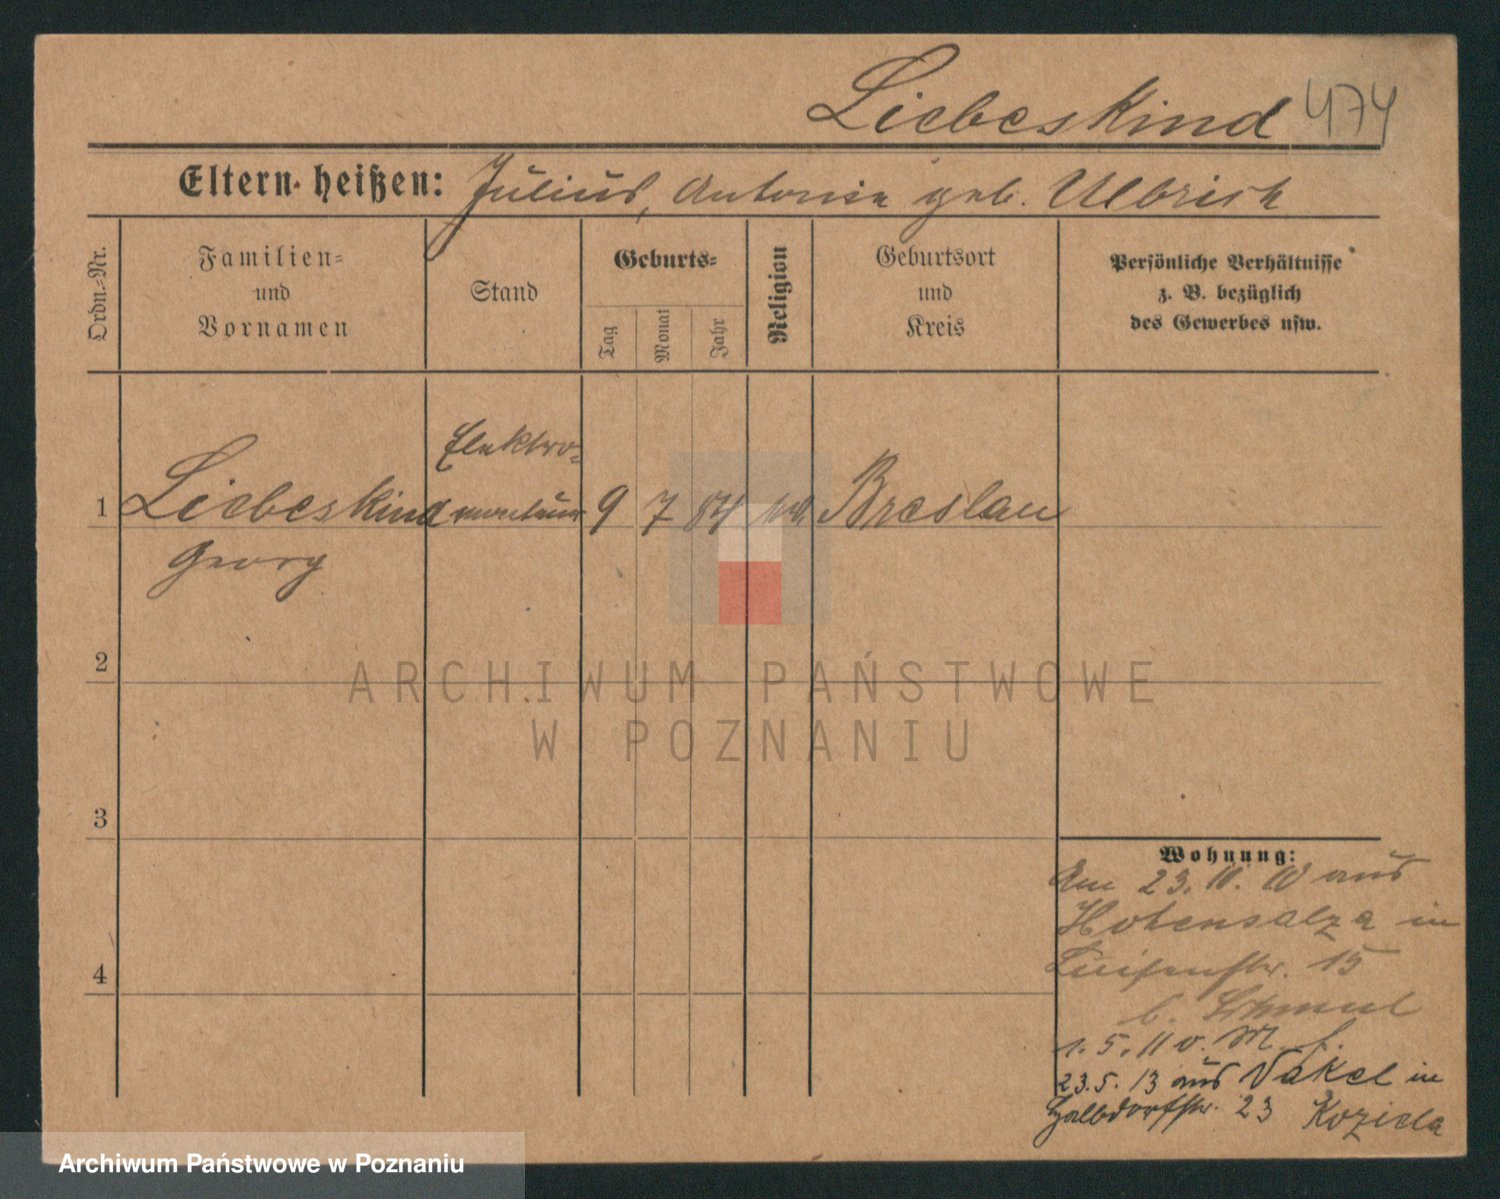 Liebeskind 474
Eltern heißen: Julius, Antonie geb. Ulbrich
Ordn.-Nr.
Familien-
und
Vornamen
Stand
Geburts-
Tag
Monat
Jahr
Religion
Geburtsort
und
Kreis
Persönliche Verhältnisse
z. B. bezüglich
des Gewerbes usw.
Elektro-
1 Liebeskind monteur 9 7 84 Breslau
Georg
2
3
4
Wohnung:
Am 23. 10. 10 aus
Hohensalza in
Luisenstr. 15
b.
1. 5. 11 v. M. f.
23. 5. 13 aus Nakel in
Halbdorfstr. 23 Koziela
ARCHIWUM PAŃSTWOWE
W POZNANIU
Archiwum Państwowe w Poznaniu